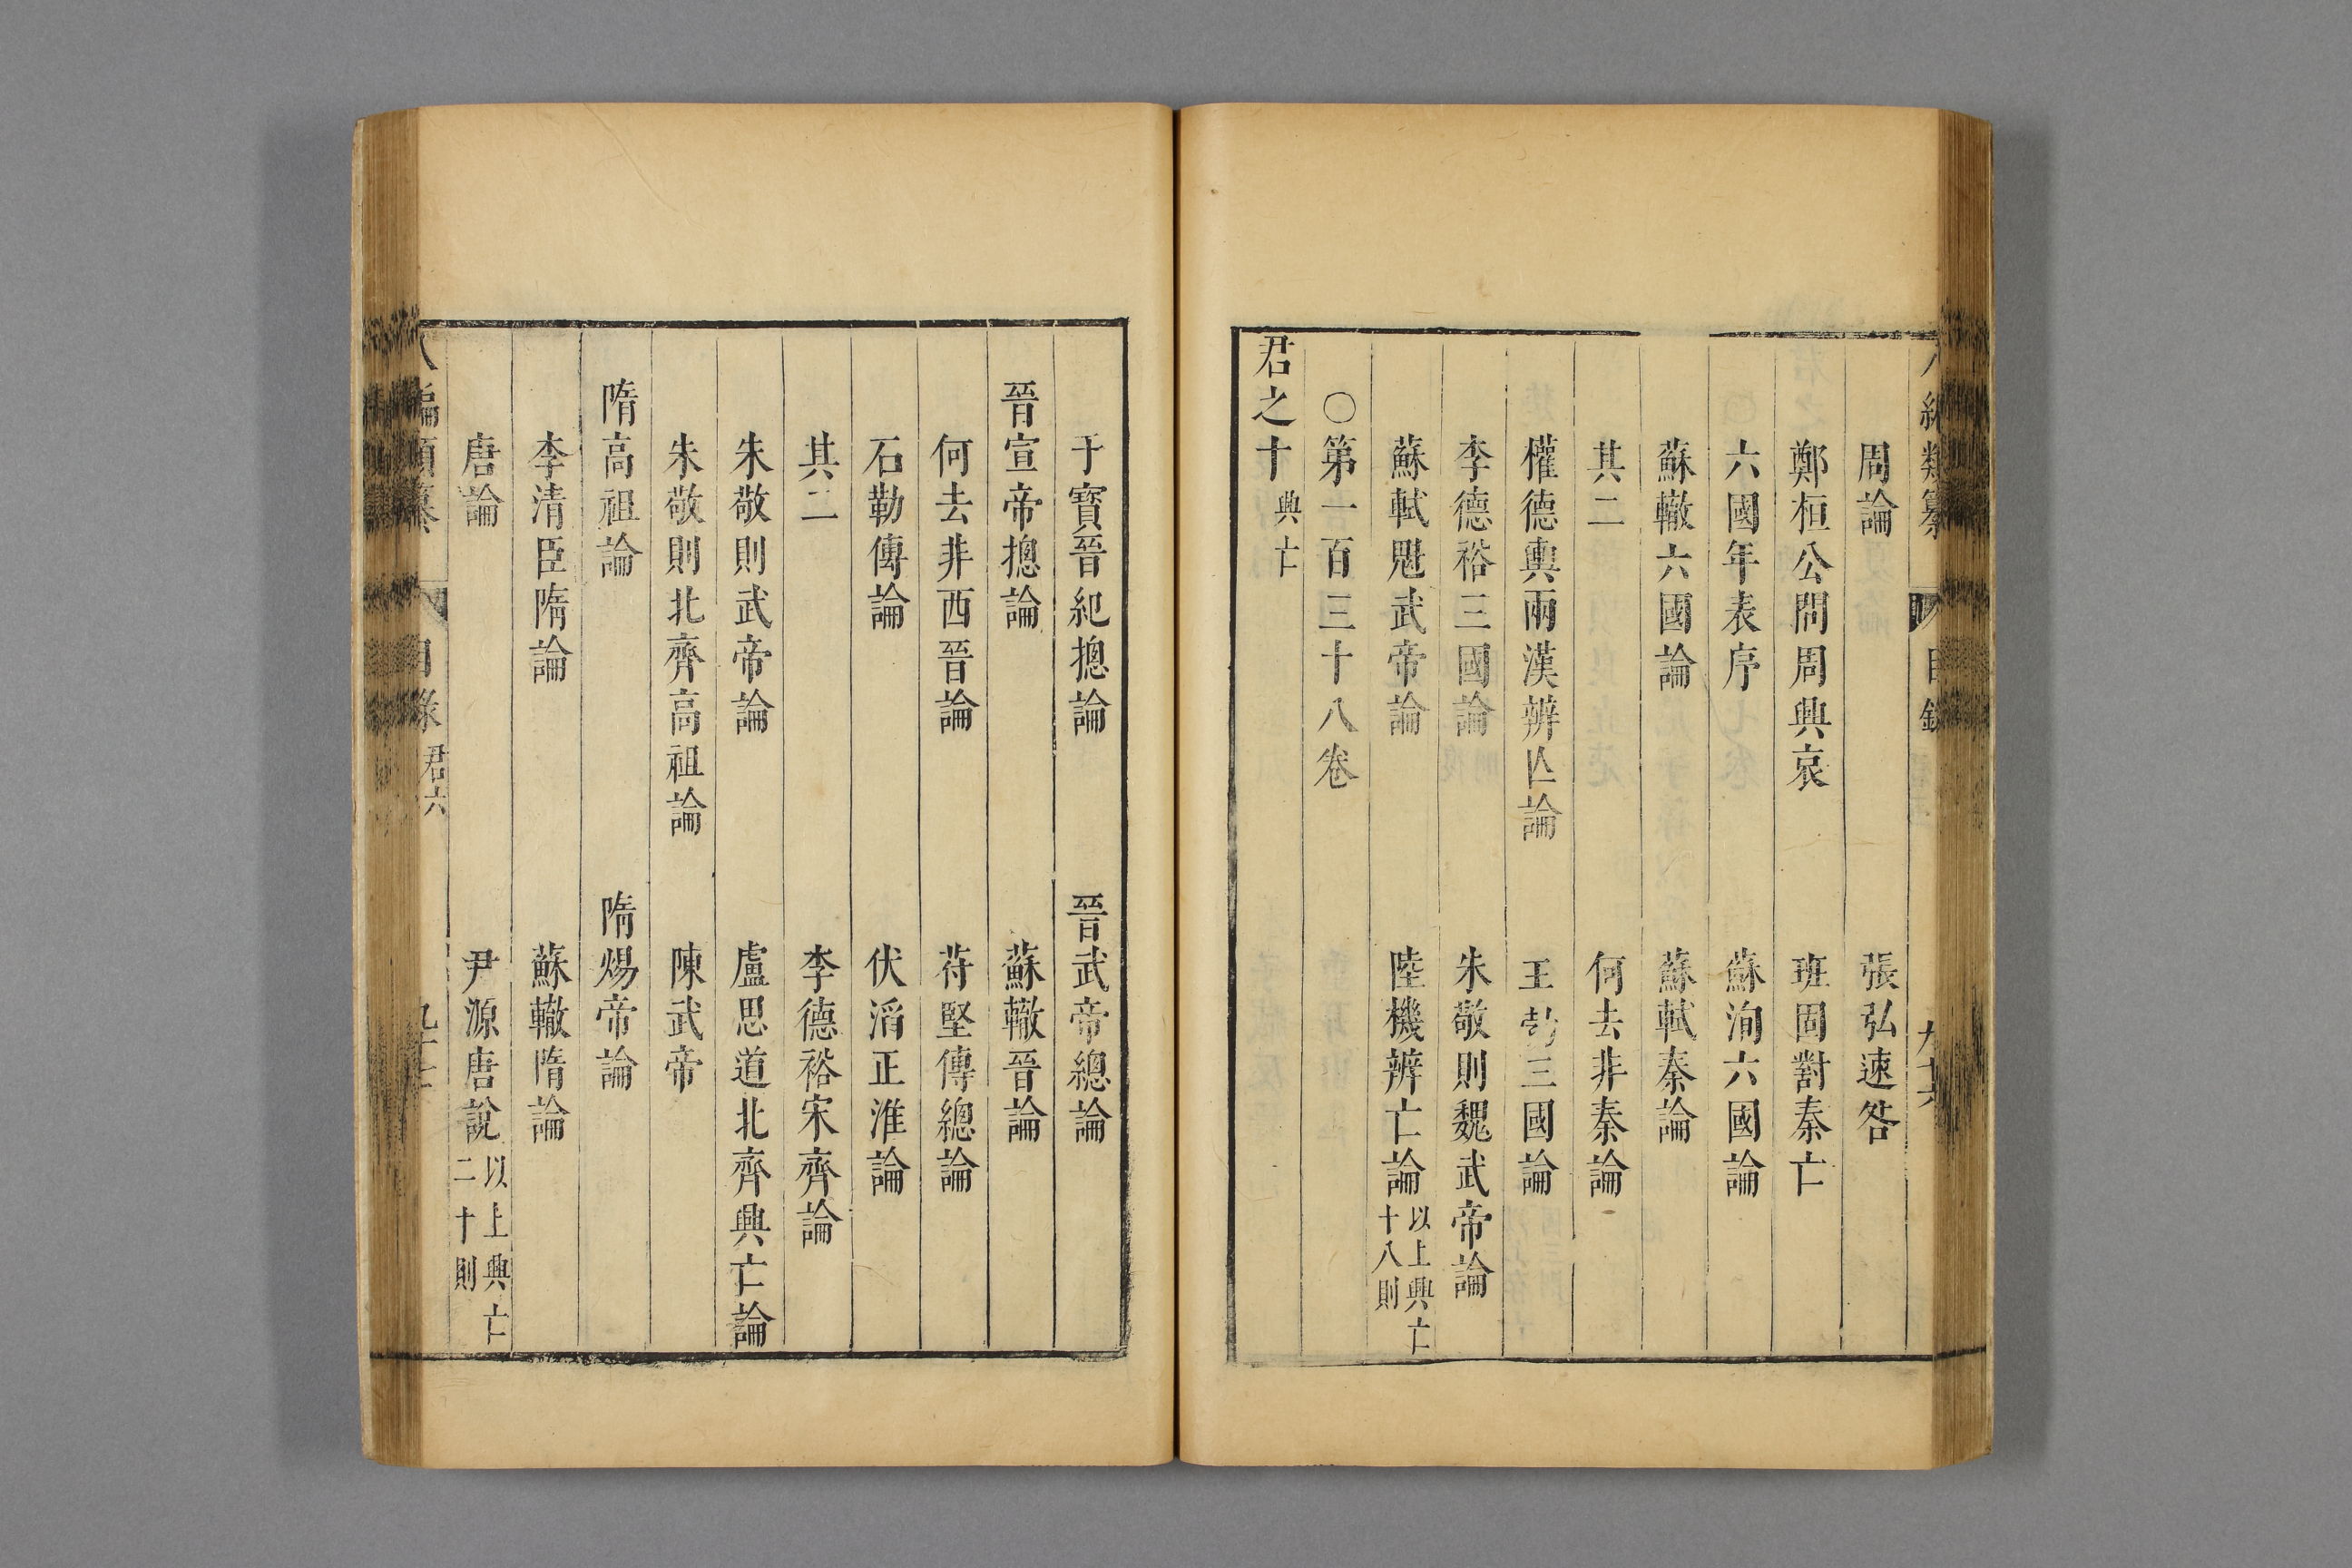 八編類纂 目錄 九十六
周論 張弘速咎
鄭桓公問周興衰 班固對秦亡
六國年表序 蘇洵六國論
蘇轍六國論 蘇軾秦論
其二 何去非秦論
權德輿兩漢辨亾論 王勃三國論
李德裕三國論 朱敬則魏武帝論
蘇軾魏武帝論 陸機辨亡論 以上興亡十八則
○第一百三十八卷
君之十 興亡
干寶晉紀摠論 晉武帝總論
晉宣帝摠論 蘇轍晉論
何去非西晉論 苻堅傳總論
石勒傳論 伏滔正淮論
其二 李德裕宋齊論
朱敬則武帝論 盧思道北齊興亡論
朱敬則北齊高祖論 陳武帝
隋高祖論 隋煬帝論
李清臣隋論 蘇轍隋論
唐論 尹源唐說 以上興亡二十則
八編類纂 目錄 君六